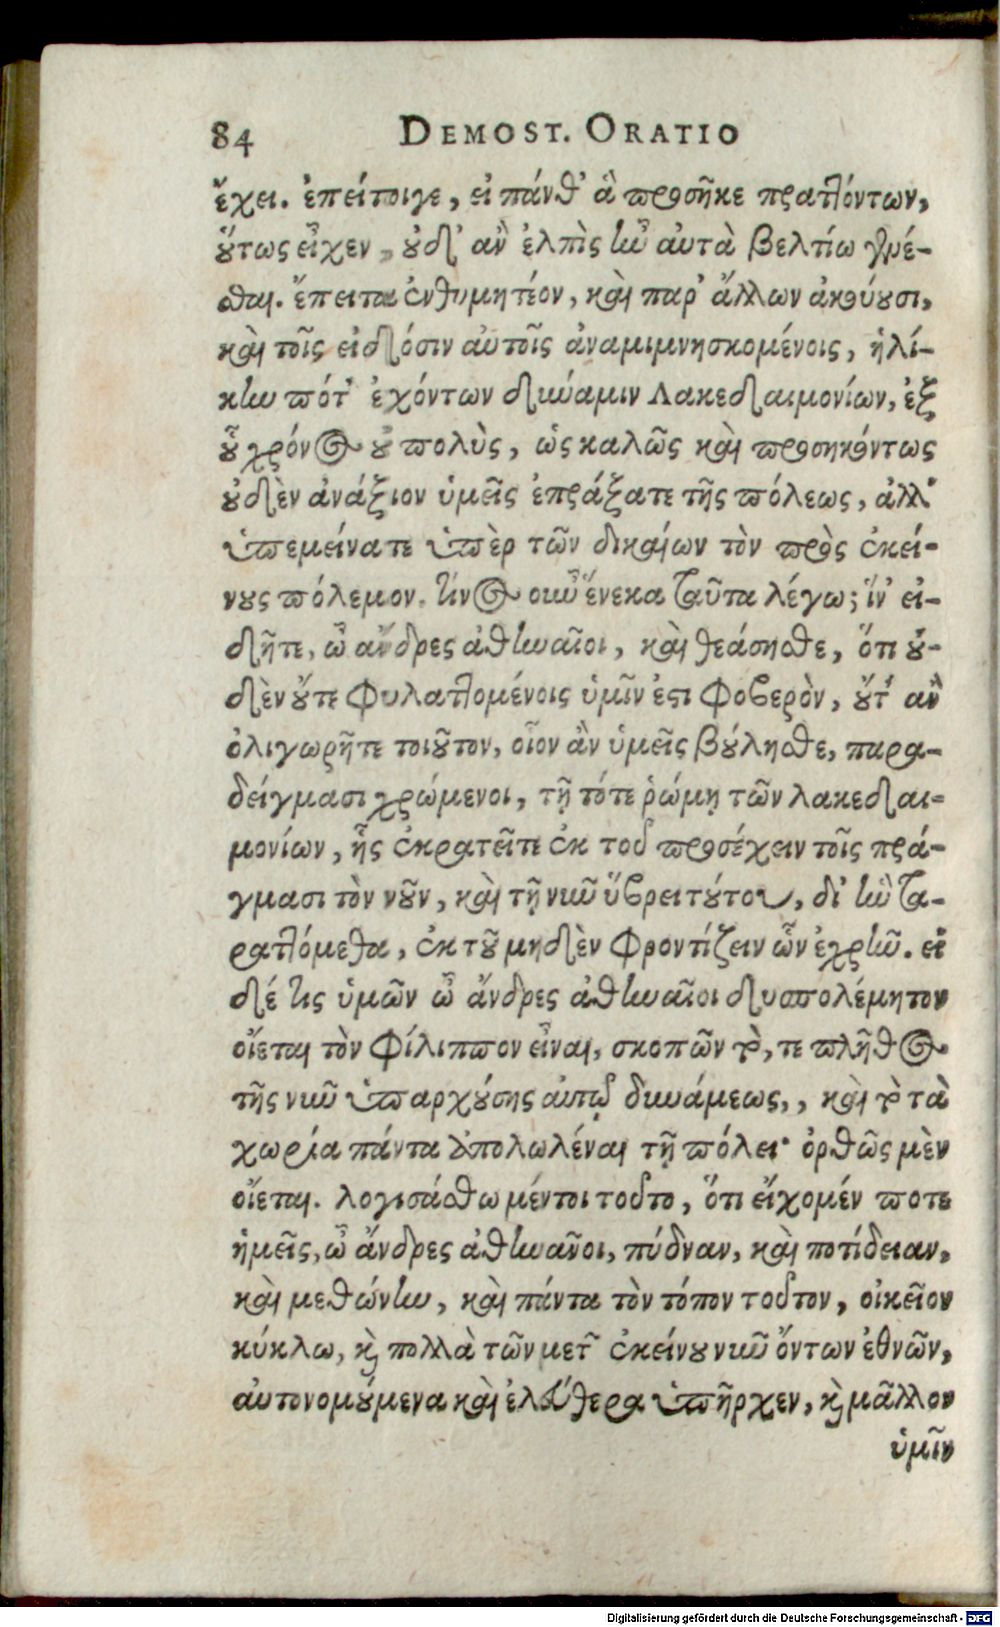 84 DEMOST. ORATIO
ἔχει. ἐπείτοιγε, εἰ πάνθ' ἃ προσῆκε πραττόντων,
οὕτως εἶχεν, οὐδ' ἂν ἐλπὶς ἦν αὐτὰ βελτίω γενέ-
σθαι. ἔπειτα ἐνθυμητέον, καὶ παρ' ἄλλων ἀκούουσι,
καὶ τοῖς εἰδόσιν αὐτοῖς ἀναμιμνησκομένοις, ἡλί-
κην πότ' ἐχόντων δύναμιν Λακεδαιμονίων, ἐξ
οὗ χρόνος οὐ πολὺς, ὡς καλῶς καὶ προσηκόντως
οὐδὲν ἀνάξιον ὑμεῖς ἐπράξατε τῆς πόλεως, ἀλλ'
ὑπεμείνατε ὑπὲρ τῶν δικαίων τὸν πρὸς ἐκεί-
νους πόλεμον. τίνος οὖν ἕνεκα ταῦτα λέγω; ἵν' εἰ-
δῆτε, ὦ ἄνδρες ἀθηναῖοι, καὶ θεάσησθε, ὅτι οὐ-
δὲν οὔτε φυλαττομένοις ὑμῖν ἐστι φοβερὸν, οὔτ' ἂν
ὀλιγωρῆτε τοιοῦτον, οἷον ἂν ὑμεῖς βούλησθε, παρα-
δείγμασι χρώμενοι, τῇ τότε ῥώμῃ τῶν λακεδαι-
μονίων, ἧς ἐκρατεῖτε ἐκ τοῦ προσέχειν τοῖς πρά-
γμασι τὸν νοῦν, καὶ τῇ νῦν ὕβρει τούτου, δι' ἣν τα-
ραττόμεθα, ἐκ τοῦ μηδὲν φροντίζειν ὧν ἐχρῆν. εἰ
δέ τις ὑμῶν ὦ ἄνδρες ἀθηναῖοι δυσπολέμητον
οἴεται τὸν Φίλιππον εἶναι, σκοπῶν τὸ, τε πλῆθος
τῆς νῦν ὑπαρχούσης αὐτῷ δυνάμεως,, καὶ τὸ τὰ
χωρία πάντα ἀπολωλέναι τῇ πόλει· ὀρθῶς μὲν
οἴεται. λογισάσθω μέντοι τοῦτο, ὅτι εἴχομέν ποτε
ἡμεῖς, ὦ ἄνδρες ἀθηναῖοι, πύδναν, καὶ ποτίδειαν,
καὶ μεθώνην, καὶ πάντα τὸν τόπον τοῦτον, οἰκεῖον
κύκλω, καὶ πολλὰ τῶν μετ' ἐκείνου νῦν ὄντων ἐθνῶν,
αὐτονομούμενα καὶ ἐλεύθερα ὑπῆρχεν, καὶ μᾶλλον
ὑμῖν
Digitalisierung gefördert durch die Deutsche Forschungsgemeinschaft - DFG